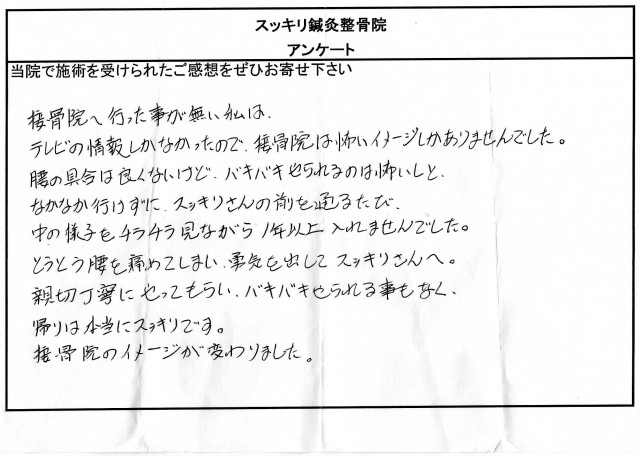 スッキリ鍼灸整骨院
アンケート
当院で施術を受けられたご感想をぜひお寄せ下さい
接骨院へ行った事が無い私は、
テレビの情報しかなかったので、接骨院は怖いイメージしかありませんでした。
腰の具合は良くないけど、バキバキやられるのは怖いしと、
なかなか行けずに、スッキリさんの前を通るたび、
中の様子をチラチラ見ながら1年以上入れませんでした。
とうとう腰を痛めてしまい、勇気を出してスッキリさんへ。
親切丁寧にやってもらい、バキバキやられる事もなく、
帰りは本当にスッキリです。
接骨院のイメージが変わりました。